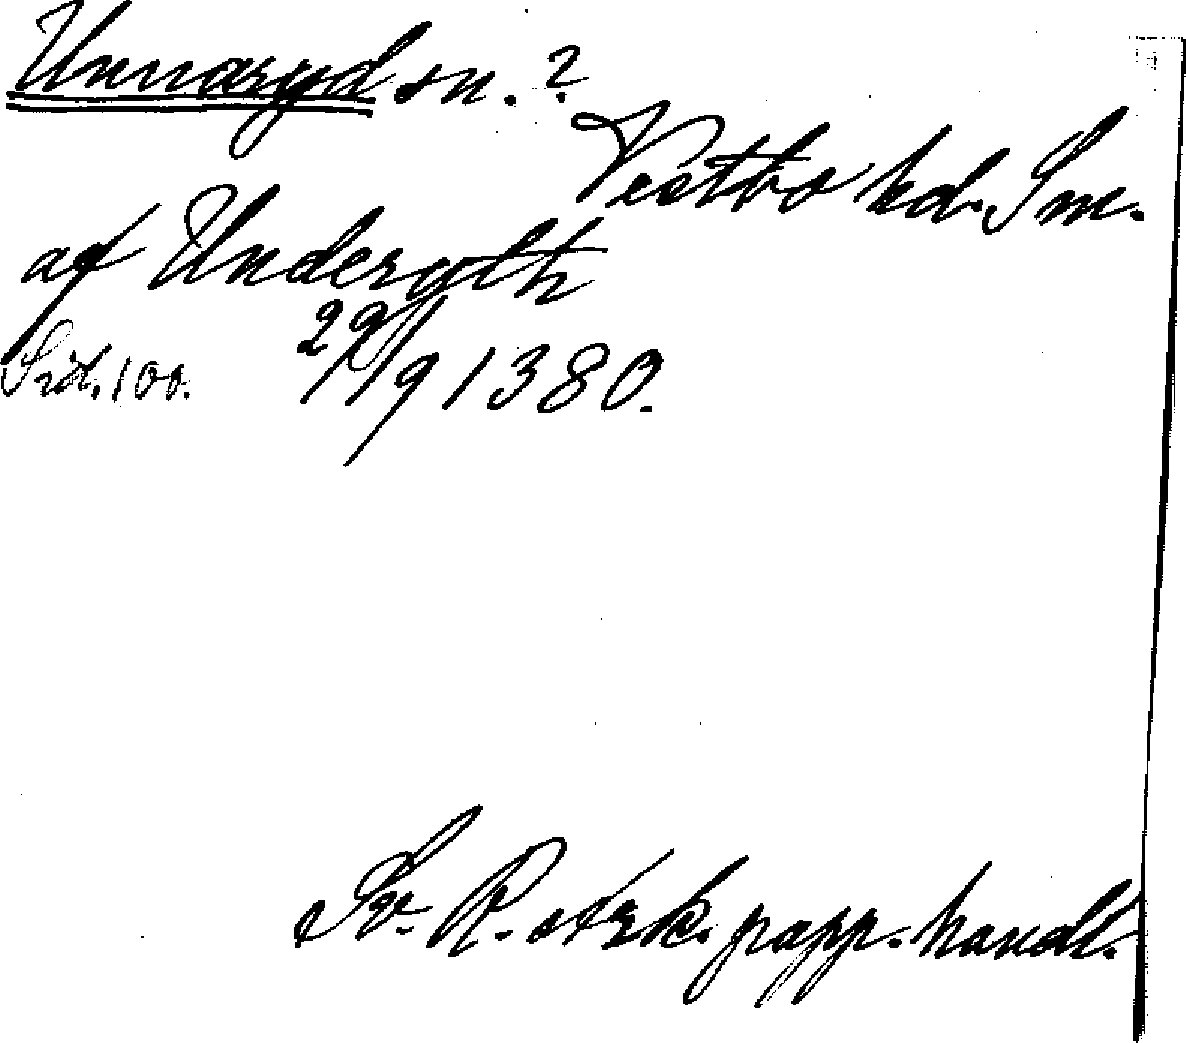 Unnaryd sn. ?
Vestbo hd. Sm.
af Underyth
Sid. 100. 29/9 1380.
Sv. R. Ark. papp. handl.